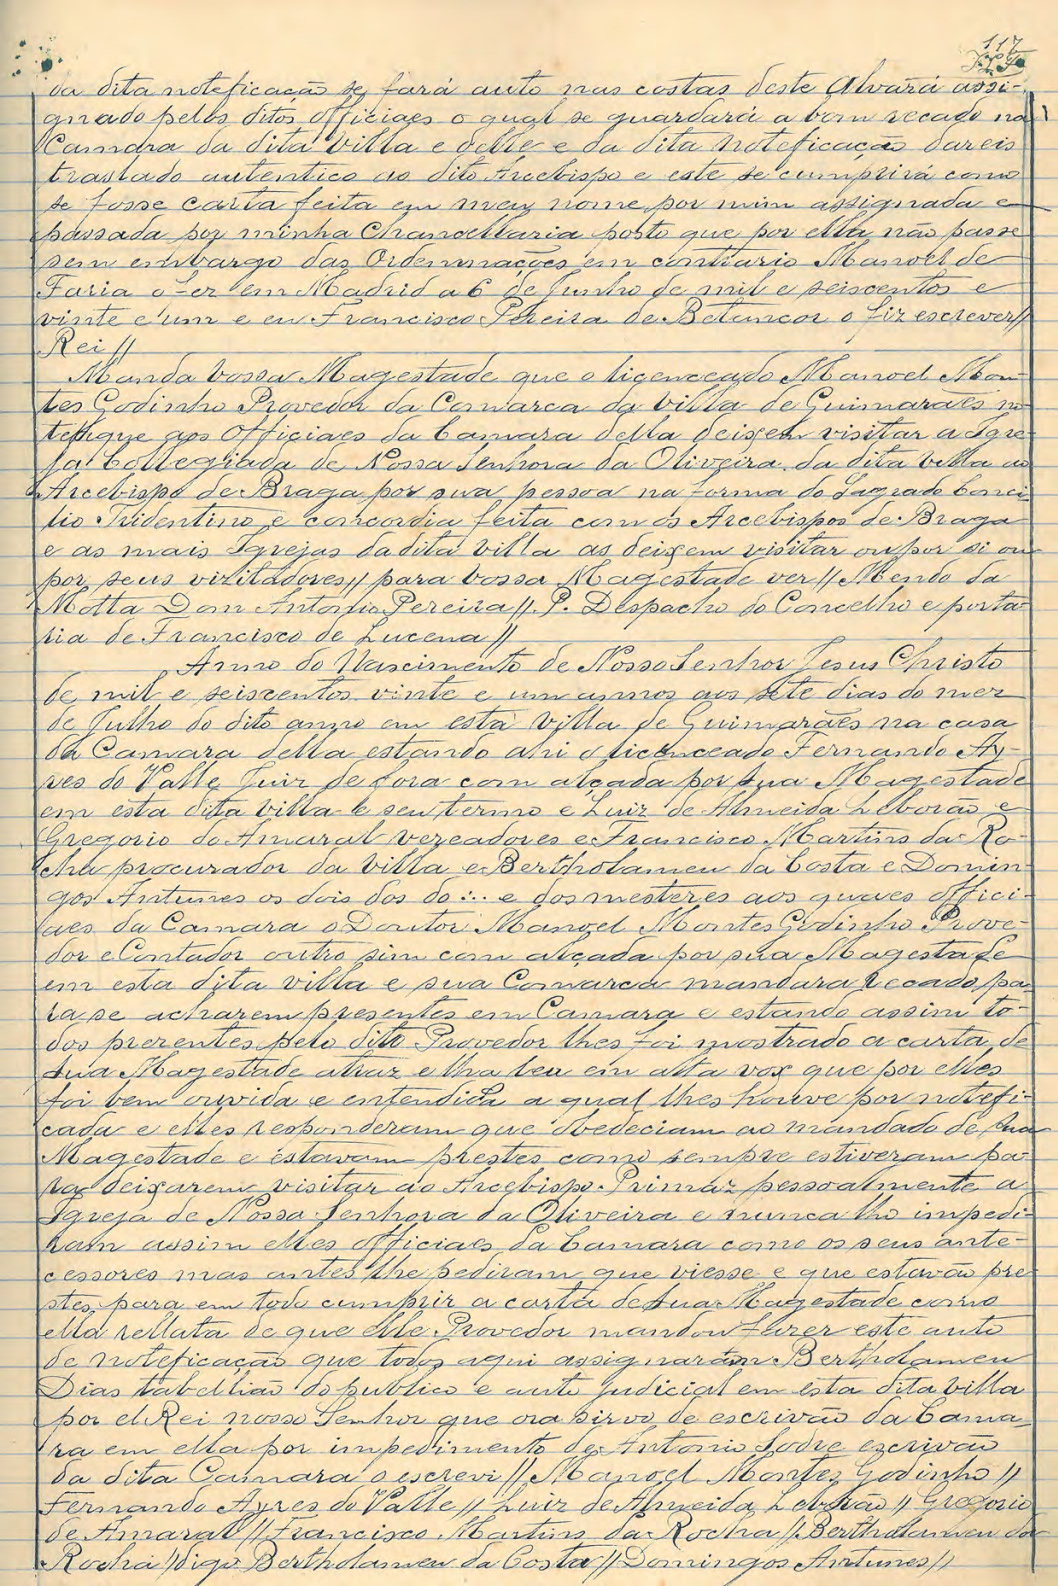 117
da dita noteficação se fará auto nas costas deste Alvará assi-
gnado pelos ditos officiaes o qual se guardará a bom recado na
Camara da dita villa e delle e da dita noteficação dareis
traslado autentico ao dito Arcebispo e este se cumprirá como
se fosse carta feita em meu nome por mim assignada e
passada por minha Chancellaria posto que por ella não passe
sem embargo das Ordennações em contrario Manoel de
Faria o fez em Madrid a 6 de Junho de mil e seiscentos e
vinte e um e eu Francisco Pereira de Betancor o fiz escrever//
Rei //
Manda Vossa Magestade que o licenceado Manoel Mon-
tes Godinho Provedor da Comarca da villa de Guimarães no-
tefique aos Officiaes da Camara della deixem visitar a Igre-
ja Collegiada de Nossa Senhora da Oliveira da dita villa ao
Arcebispo de Braga por sua pessoa na forma do Sagrado Conci-
lio Tridentino e concordia feita com os Arcebispos de Braga
e as mais Igrejas da dita villa as deixem visitar ou por si ou
por seus vizitadores// para Vossa Magestade ver // Mendo da
Motta Dom Antonio Pereira //. P. Despacho do Concelho e porta-
ria de Francisco de Lucena //
Anno do Nascimento de Nosso Senhor Jesus Christo
de mil e seiscentos vinte e um annos aos sete dias do mez
de Julho do dito anno em esta villa de Guimarães na casa
da Camara della estando ahi o licenceado Fernando Ay-
res do Valle Juiz de fora com alçada por Sua Magestade
em esta dita villa e seu termo e Luiz de Almeida Leborão e
Gregorio do Amaral vereadores e Francisco Martins da Ro-
cha procurador da villa e Bertholameu da Costa e Domin-
gos Antunes os dois dos do :.. e dos mesteres aos quaes offici-
aes da Camara o Doutor Manoel Montes Godinho Prove-
dor e Contador outro sim com alçada por sua Magestade
em esta dita villa e sua Comarca mandara recado pa-
ra se acharem presentes em Camara e estando assim to-
dos prezentes pelo dito Provedor lhes foi mostrado a carta de
sua Magestade atraz e lha leu em alta voz que por elles
foi bem ouvida e entendida a qual lhes houve por notefi-
cada e elles responderam que obedeciam ao mandado de sua
Magestade e estavam prestes como sempre estiveram pa-
ra deixarem visitar ao Arcebispo Primaz pessoalmente a
Igreja de Nossa Senhora da Oliveira e nunca lho impedi-
ram assim elles officiaes da Camara como os seus ante-
cessores mas antes lhe pediram que viesse e que estavão pre-
stes para em todo cumprir a carta de sua Magestade como
ella rellata de que elle Provedor mandou fazer este auto
de noteficação que todos aqui assignaram Bertholameu
Dias tabellião do publico e auto judicial em esta dita villa
por el Rei nosso Senhor que ora sirvo de escrivão da Cama-
ra em ella por impedimento de Antonio Sodre escrivão
da dita Camara o escrevi // Manoel Montes Godinho //
Fernando Ayres do Valle // Luiz de Almeida Leborão // Gregorio
de Amaral // Francisco Martins da Rocha // Bertholameu da
Rocha // digo Bertholameu da Costa // Domingos Antunes //